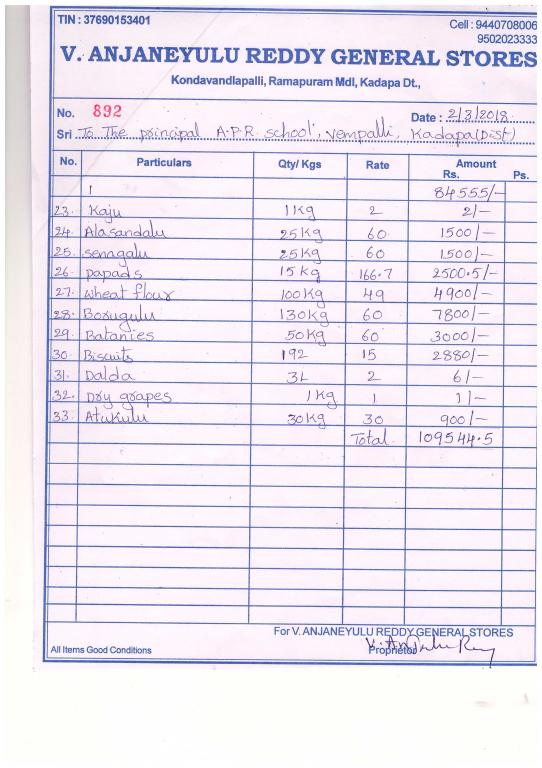 TIN : 37690153401 Cell : 9440708006
9502023333
V. ANJANEYULU REDDY GENERAL STORES
Kondavandlapalli, Ramapuram Mdl, Kadapa Dt.,
No. 892 Date : 2/3/2018
Sri To The principal A.P.R. school, Vempalli, Kadapa(Dist)
No. Particulars Qty/ Kgs Rate Amount
Rs. Ps.
1 84555/-
23. Kaju 1Kg 2 2/-
24. Alasandalu 25Kg 60 1500/-
25. senagalu 25Kg 60 1500/-
26. papads 15Kg 166.7 2500.5/-
27. wheat flour 100Kg 49 4900/-
28. Borugulu 130Kg 60 7800/-
29. Batanies 50Kg 60 3000/-
30. Biscuits 192 15 2880/-
31. Dalda 3L 2 6/-
32. Dry grapes 1Kg 1 1/-
33. Atukulu 30Kg 30 900/-
Total 109544.5
For V. ANJANEYULU REDDY GENERAL STORES
All Items Good Conditions Proprietor